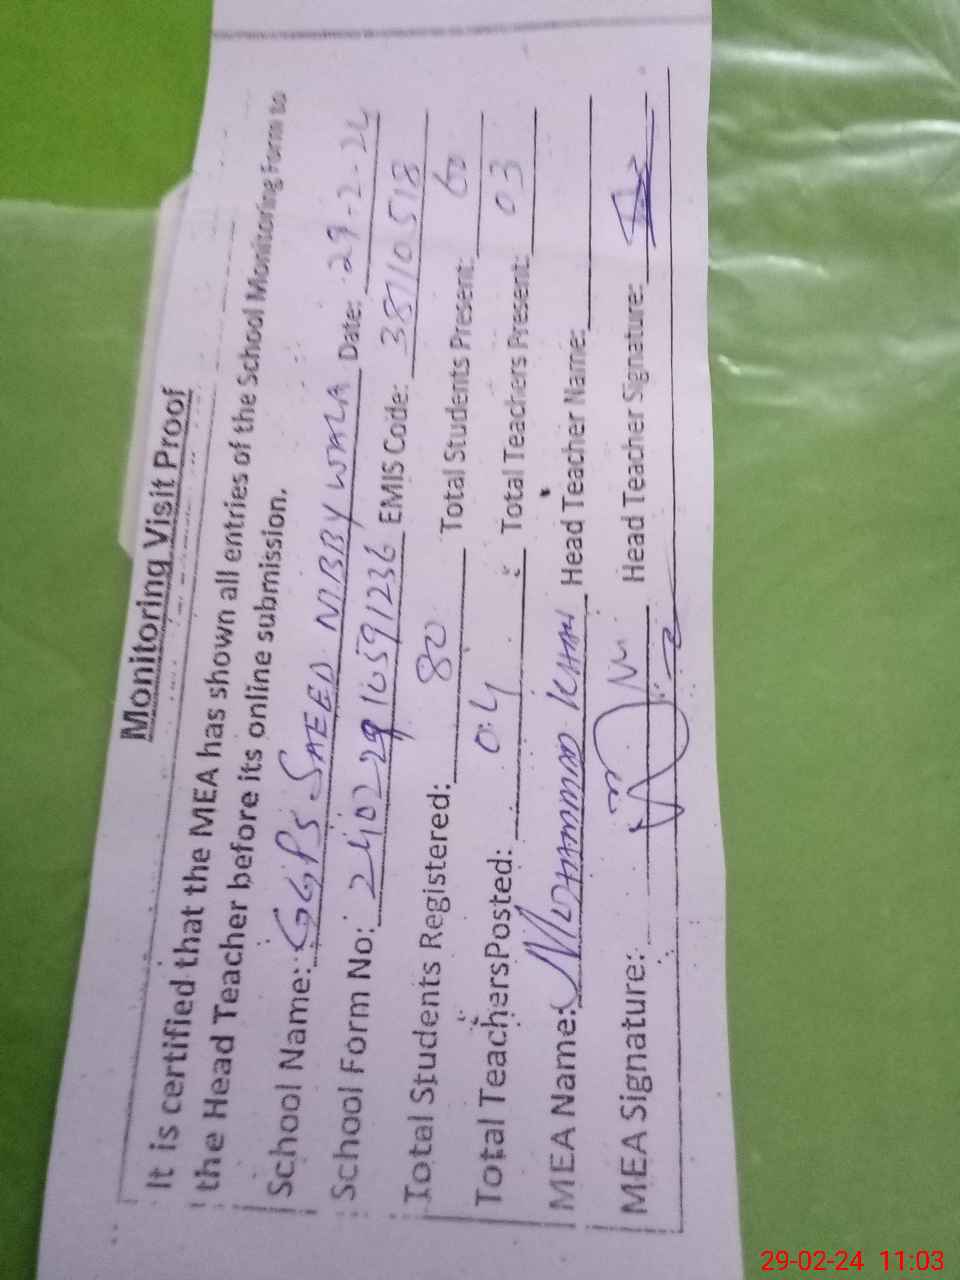 Monitoring Visit Proof
It is certified that the MEA has shown all entries of the School Monitoring Form to
the Head Teacher before its online submission.
School Name: GGPS SAEED NIBBY WALA Date: 29-2-24
School Form No: 24022910591236 EMIS Code: 38110518
Total Students Registered: 80 Total Students Present: 60
Total TeachersPosted: 04 Total Teachers Present: 03
MEA Name: MUHAMMAD KHAN Head Teacher Name:
MEA Signature: Head Teacher Signature:
29-02-24 11:03